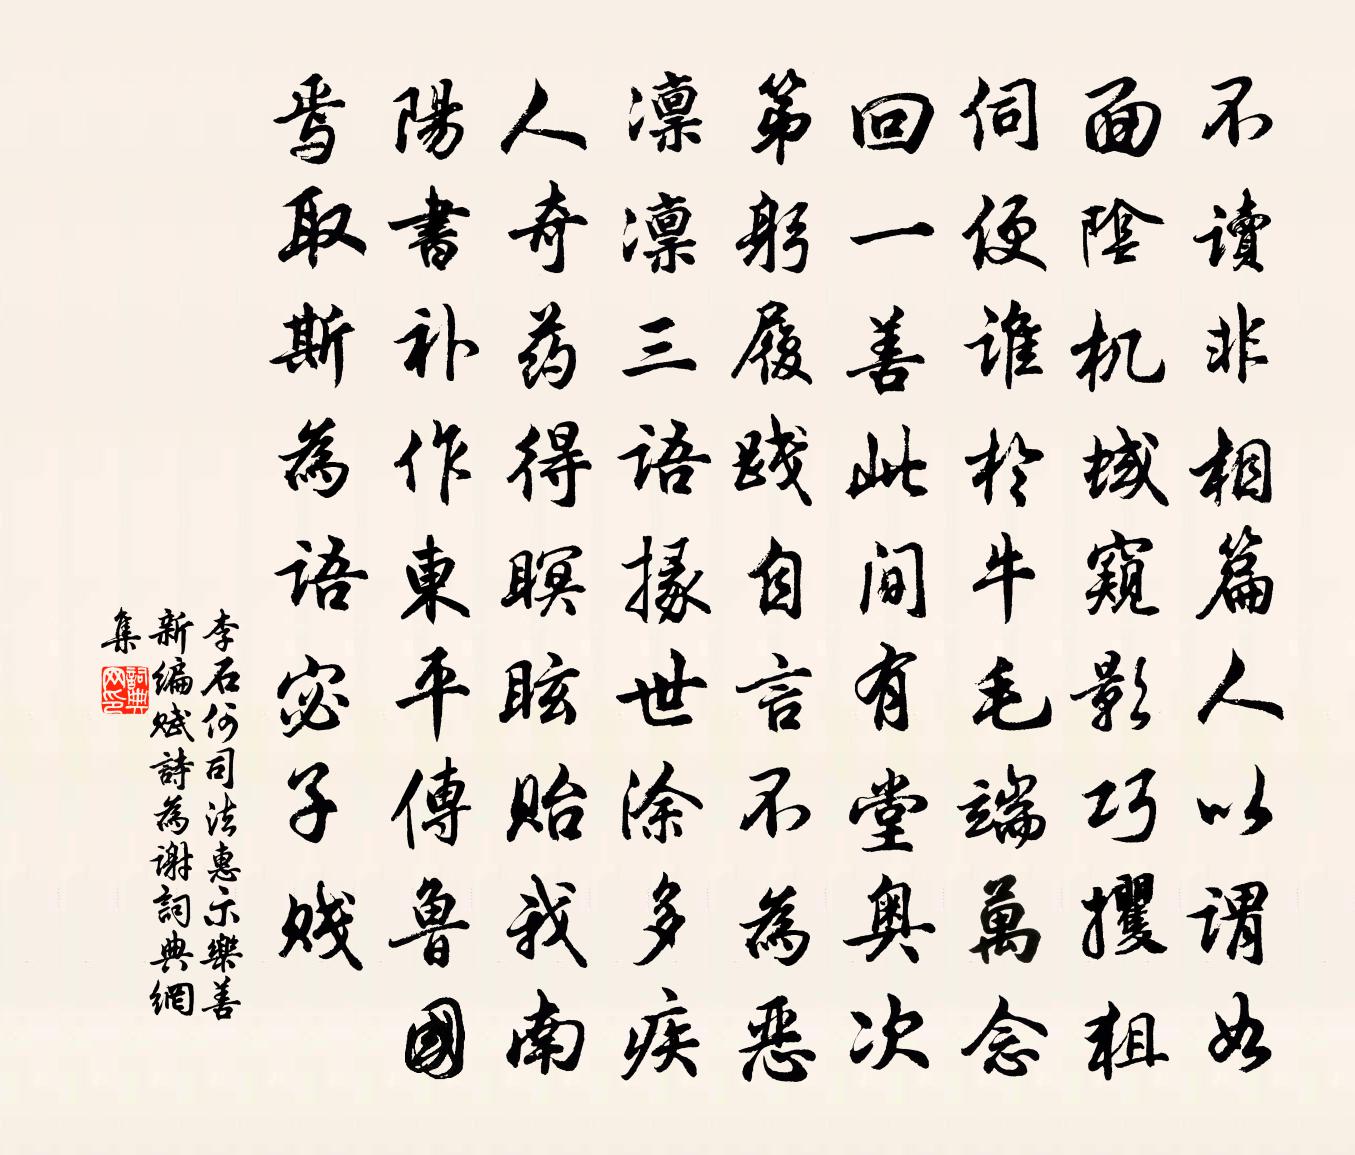 不讀非相篇人以謂如
面陰机域窺影巧攫狙
伺便誰於牛毛端萬念
回一善此间有堂奥次
第躬履践自言不為恶
凛凛三語掾世涂多疾
人奇药得瞑眩贻我南
陽書补作東平傳魯國
焉取斯為語宓子贱
李石何司法惠示樂善
新编赋詩為謝詞典網
集
詞典
网印